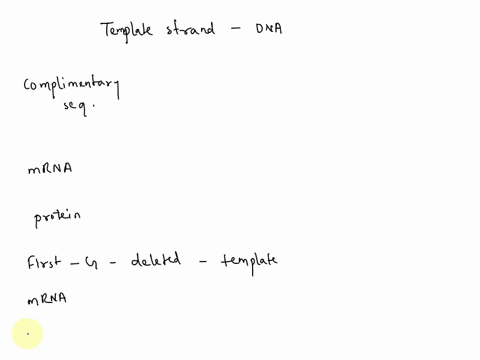 Template strand - DNA
Complimentary
seq.
mRNA
protein
First - G - deleted - template
mRNA